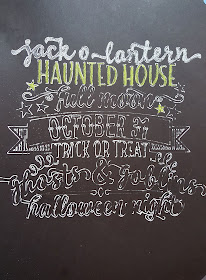 jack-o-lantern
HAUNTED HOUSE
full moon
OCTOBER 31
TRICK OR TREAT
ghosts & goblins
halloween night